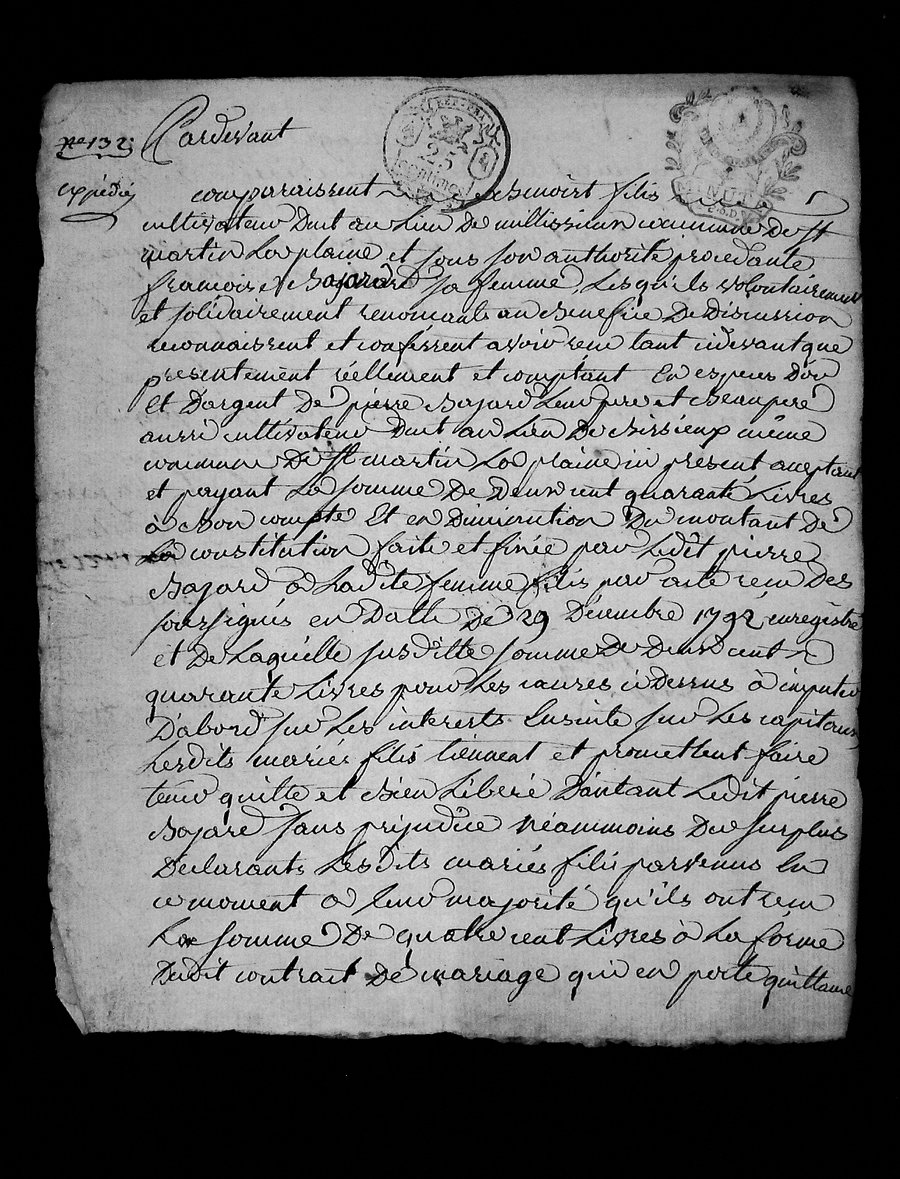 No 132
expédié
Pardevant
25
centimes
MINUTE
comparaissent Benoist filis
cultivateur Dmt au Lieu De millissieu commune De st
martin La plaine et sous son authorité procedante
francoise Bajard sa femme, Lesquels volontairement
et solidairement renoncants au Benefice De Discussion
reconnaissent et confessent avoir recu tant cidevant que
presentement réellement et comptant En especes D'or
Et D'argent De pierre Bajard Leur pere et Beaupere
aussi cultivateur Dmt au Lieu De Bissieux même
commune De St martin La plaine ici present acceptant
et payant La somme De Deux cent quarante Livres
à Bon compte Et en Diminution Du montant De
La constitution faite et finée par Ledit pierre
Bajard a Ladite femme filis par acte recu Des
soussignés en Datte De 29 Décembre 1792 enregistré
et De Laquelle susditte somme De Deux cent
quarante Livres pour Les causes cidessus a imputer
D'abord sur Les interests Ensuite sur Les capitaux
Lesdits mariés filis tiennent et promettent faire
tenir quitte et Bien Libéré D'autant Ledit pierre
Bajard sans préjudice néammoins Du surplus
Declarants Lesdits mariés filis parvenus En
ce moment a leur majorité qu'ils ont recu
La somme De quatre cent Livres à La forme
Dudit contrat De mariage qui en porte quittance